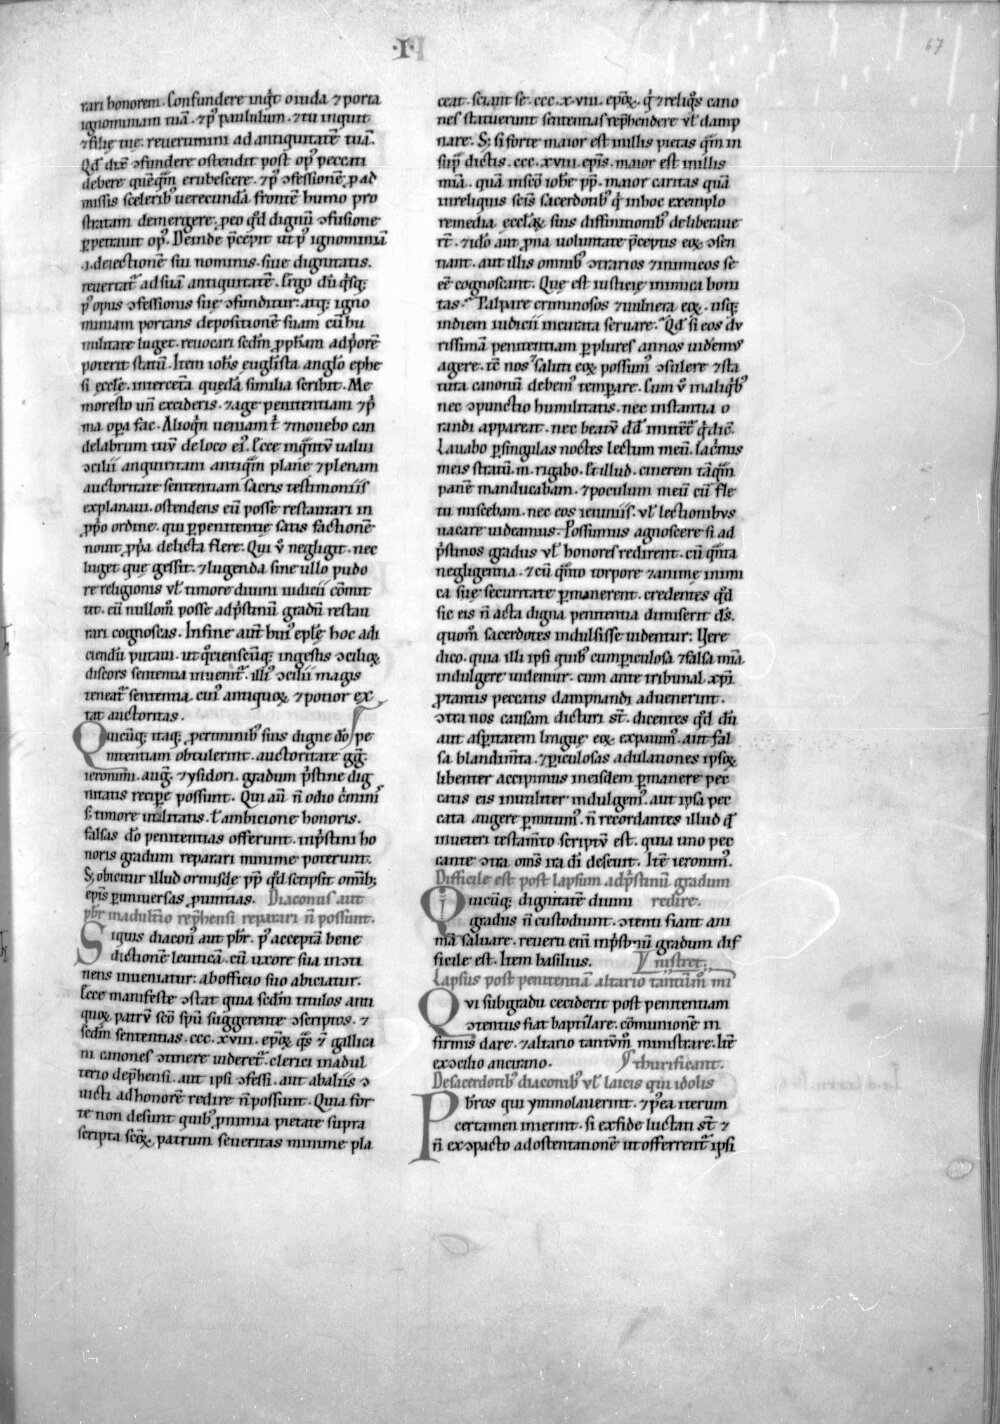 ·I·
67
rari honorem. Confundere inqͥt o iuda ⁊ porta
ignominiam tuā. ⁊ pꝰ paululum. ⁊ tu inquit
⁊ filię tuę. reuertimini ad antiquitatē tuā.
Qd̄ dix̄ ↄfundere ostendit post opꝰ peccati
debere quēq̄m erubescere. ⁊ pꝰ ↄfessionē ꝓ ad
missis sceleribꝰ uerecundā frontē humo pro
stratam demergere. ꝓ eo qd̄ dignū ↄfusione
ꝑpetrauit opꝰ. Deinde p̄cepit ut pꝰ ignominiā
.i. deiectionē sui nominis. siue dignitatis.
reuertat᷑ ad suā antiquitatē. Ergo dū qͥsq;
pꝰ opus ↄfessionis suę ↄfunditur. atq; igno
miniam portans depositionē suam cū hu
militate luget. reuocari sedm̄ ꝓpħam ad pͥorē
poterit statū. Item iohēs euḡlista anglo ephe
si ecclē. inter cetā quedā similia scribit. Me
mor esto un̄ excideris. ⁊ age penitentiam ⁊ pͥ
ma oꝑa fac. Alioqn̄ ueniam t̄ ⁊ mouebo can
delabrum tuū de loco eiꝰ.
ↄcilii anquiritam antiq̄m plane ⁊ plenam
auctoritate sententiam sacris testimoniis
explanaui. ostendens eū posse restaurari in
ꝓpͥo ordine. qui ꝑ penitentię satis factionē
nouit ꝓpͥa delicta flere. Qui ū negligit. nec
luget que gessit. ⁊ lugenda sine ullo pudo
re religionis uł timore diuini iudicii cōmit
tit. eū nullom̄ posse ad pͥstinū gradū restau
rari cognoscas. In fine aut̄ huiꝰ epłe hoc adi
ciendū putaui. ut qͦciensc̄uq; in gestis ↄcilioꝝ
discors sententia inuenit᷑. illiꝰ ↄcilii magis
teneat᷑ sententia. cuiꝰ antiquoꝝ ⁊ potior ex
tat auctoritas.
Quicūq; itaq; pro criminibꝰ suis digne dō pe
nitentiam obtulerint. auctoritate gg̅.
ieronimi. aug̅. ⁊ ysidori. gradum pͥstine dig
nitatis reciꝑe possunt. Qui aū n̄ odio cͥminis
s; timore uilitatis. ł ambitione honoris.
falsas dō penitentias offerunt. in pͥstini ho
noris gradum reparari minime poterunt.
S; obicitur illud ormisde pp̄ qd̄ scripsit omībꝫ
ep̄is ꝑ uniuersas ꝓuintias. Diaconus aut
pbr̄ in adultͥio rep̄hensi reparari n̄ possunt.
Siquis diaconꝰ aut pbr̄. pꝰ acceptā bene
dictionē leuiticā. cū uxore sua incon
tinens inueniatur. ab officio suo abiciatur.
Ecce manifeste ↄstat quia sedm̄ titulos anti
quoꝝ patrū scō spū suggerente ↄscriptos. ⁊
sedm̄ sententias .ccc.xviii. ep̄oꝝ q̄s ⁊ gallica
ni canones ↄtinere uideret᷑. clerici in adul
terio dep̄hensi. aut ipsi ↄfessi. aut ab aliis ↄ
uicti ad honorē redire n̄ possunt. Quia for
te non desunt quibꝰ ꝓ nimia pietate supra
scripta scōꝝ patrum seueritas minime pla
ceat. sciant se .ccc.x.viii. ep̄oꝝ. qͥ ⁊ reliqͦs cano
nes statuerunt sententias rep̄hendere uł damp
nare. S; si forte maior est in illis pietas q̄m in
supͣ dictis .ccc.xviii. ep̄is. maior est in illis
mīa. quā in scō iohē pp̄. maior caritas quā
in reliquis scīs sacerdotibꝰ qͥ in hoc exemplo
remedia ecclaꝝ suis diffinitionibꝰ deliberaue
rt̄. ⁊ idō aut ꝓpͥa uoluntate p̄ceptis eoꝝ ↄsen
tiant. aut illis omnibꝰ ↄtrarios ⁊ inimicos se
eē cognoscant. Quę est iusticię inimica boni
tas. Palpare criminosos ⁊ uulnera eoꝝ. usq;
in diem iudicii incurata seruare. Qd̄ si eos du
rissimā penitentiam ꝑ plures annos uidemꝰ
agere. tc̄ nos saluti eoꝝ possumꝰ ↄsulere ⁊ sta
tuta canonū debemꝰ temꝑare. Cum ū in aliqͥbꝰ
nec ↄpunctio humilitatis. nec instantia o
randi apparent. nec beatū dd̄ imitēt᷑ qͥ dic̄.
Lauabo ꝑ singulas noctes lectum meū. lacͥmis
meis stratū m̄. rigabo. Et illud. cinerem tāq̄m
panē manducabam. ⁊ poculum meū cū fle
tu miscebam. nec eos ieiuniis. uł lectionibus
uacare uideamus. Possumus agnoscere si ad
pͥstinos gradus uł honores redirent. cū qͣnta
negligentia. ⁊ cū qͣnto torpore ⁊ animę inimi
ca suę securitate ꝑmanerent. credentes qd̄
sic eis n̄ acta digna penitentia dimiserit d̄s.
quom̄ sacerdotes indulsisse uidentur. Uere
dico. quia illi ipsi quibꝰ cum ꝑiculosa ⁊ falsa mīa
indulgere uidemur. cum ante tribunal xp̄i
ꝓ tantis peccatis dampnandi aduenerint.
ↄtra nos causam dicturi st̄. dicentes qd̄ dū
aut asꝑitatem linguę eoꝝ expauimꝰ. aut fal
sa blandimta. ⁊ ꝑiculosas adulationes ipsoꝝ
libenter accipimus in eisdem ꝑmanere pec
catis eis inutiliter indulgemꝰ. aut ipsa pec
cata augere ꝑmittimꝰ. n̄ recordantes illud qd̄
in ueteri testam̄to scriptū est. quia uno pec
cante ↄtra om̄s ira dī descendit. Itē ieronimꝰ.
Difficile est post lapsum ad pͥstinū gradum
redire.
Quicūq; dignitatē diuini
gradus n̄ custodiunt. ↄtenti fiant ani
mā saluare. reuerti eni in pͥstinū gradum dif
ficile est. Item basilius.
Lapsus post penitentiā altario tantūm̄ mi
nistret.
Qui sub gradu ceciderit post penitentiam
ↄtentus fiat baptizare. cōmunionē in
firmis dare. ⁊ altario tantūm. ministrare. Itē
ex ↄcilio ancirano.
De sacerdotibꝰ diaconibꝰ uł laicis qui idolis
thurificant.
Pbr̄os qui ymmolauerint. ⁊ p̄ea iterum
certamen inierint. si ex fide luctati st̄ ⁊
n̄ ex ↄpacto ad ostentationē ut offerrent᷑ ipsi